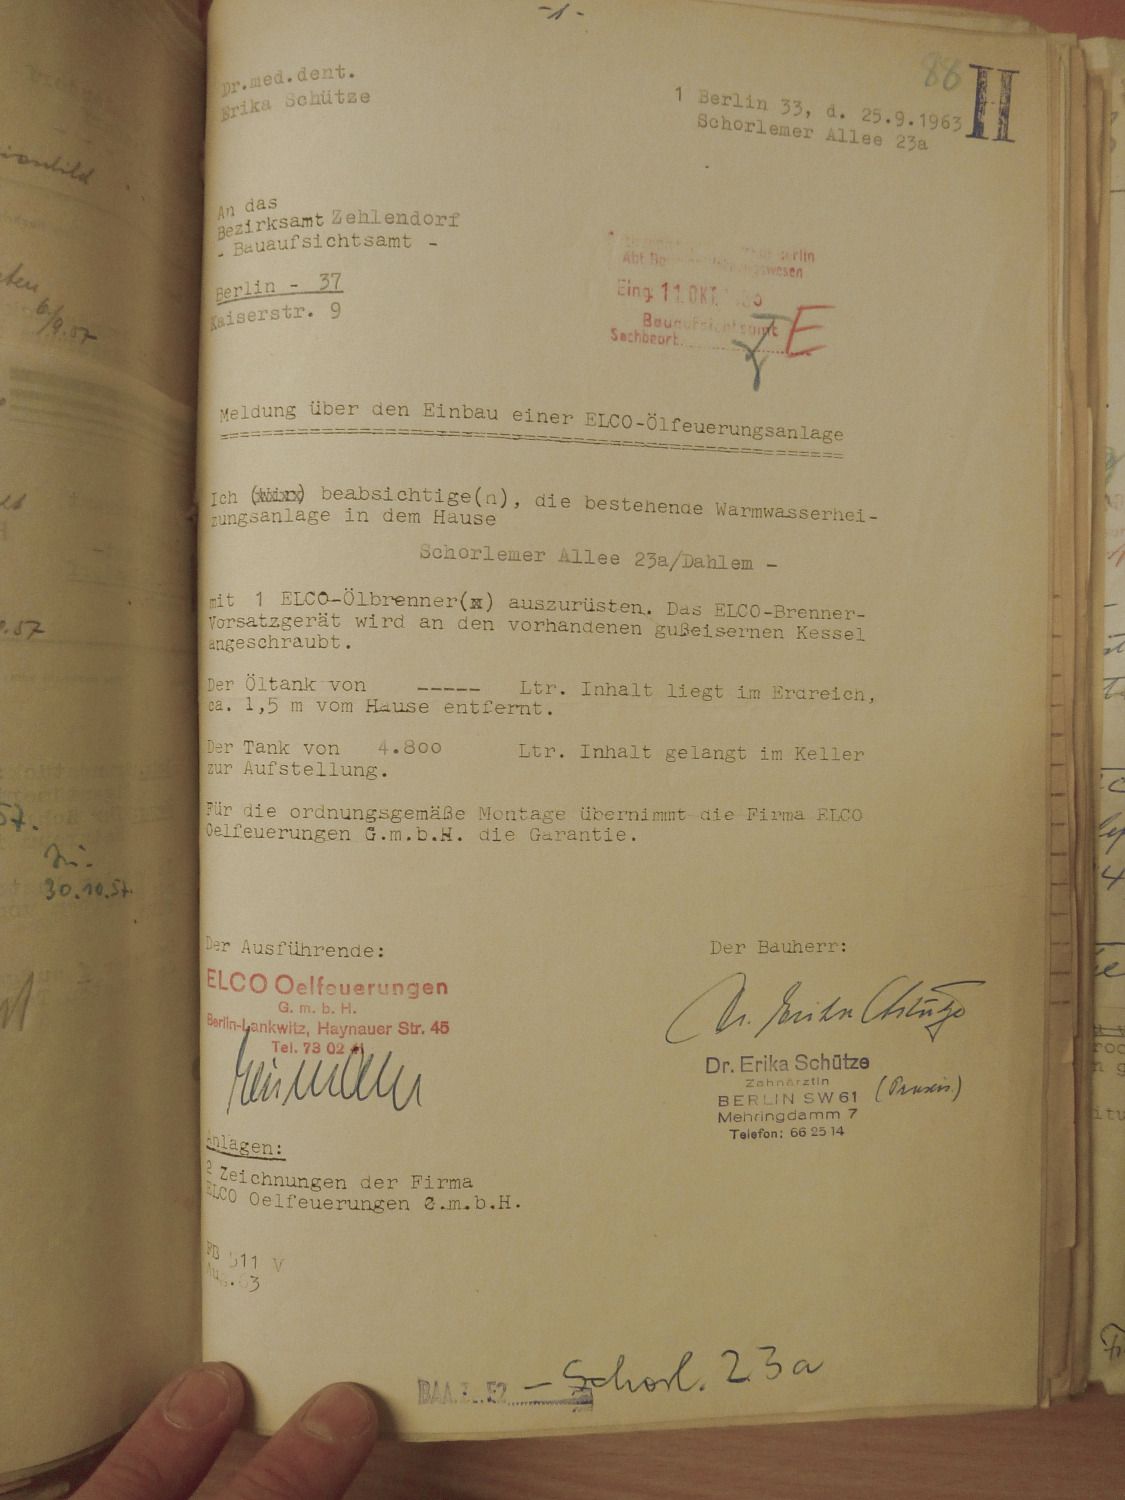 -1-
Dr.med.dent.
Erika Schütze
86
H
1 Berlin 33, d. 25.9.1963
Schorlemer Allee 23a
An das
Bezirksamt Zehlendorf
- Bauaufsichtsamt -
Berlin - 37
Kaiserstr. 9
Eing. 11. OKT.
Bauaufsichtsamt
Sachbearb.
E
Meldung über den Einbau einer ELCO-Ölfeuerungsanlage
Ich (wir) beabsichtige(n), die bestehende Warmwasserhei-
zungsanlage in dem Hause
Schorlemer Allee 23a/Dahlem -
mit 1 ELCO-Ölbrenner(x) auszurüsten. Das ELCO-Brenner-
Vorsatzgerät wird an den vorhandenen gußeisernen Kessel
angeschraubt.
Der Öltank von ----- Ltr. Inhalt liegt im Erdreich,
ca. 1,5 m vom Hause entfernt.
Der Tank von 4.800 Ltr. Inhalt gelangt im Keller
zur Aufstellung.
Für die ordnungsgemäße Montage übernimmt die Firma ELCO
Oelfeuerungen G.m.b.H. die Garantie.
Der Ausführende:
Der Bauherr:
ELCO Oelfeuerungen
G. m. b. H.
Berlin-Lankwitz, Haynauer Str. 45
Tel. 73 02
Dr. Erika Schütze
Dr. Erika Schütze
Zahnärztin
BERLIN SW 61 (Praxis)
Mehringdamm 7
Telefon: 66 25 14
Anlagen:
2 Zeichnungen der Firma
ELCO Oelfeuerungen G.m.b.H.
FB 511 V
Aug.63
- Schorl. 23a
30.10.57.